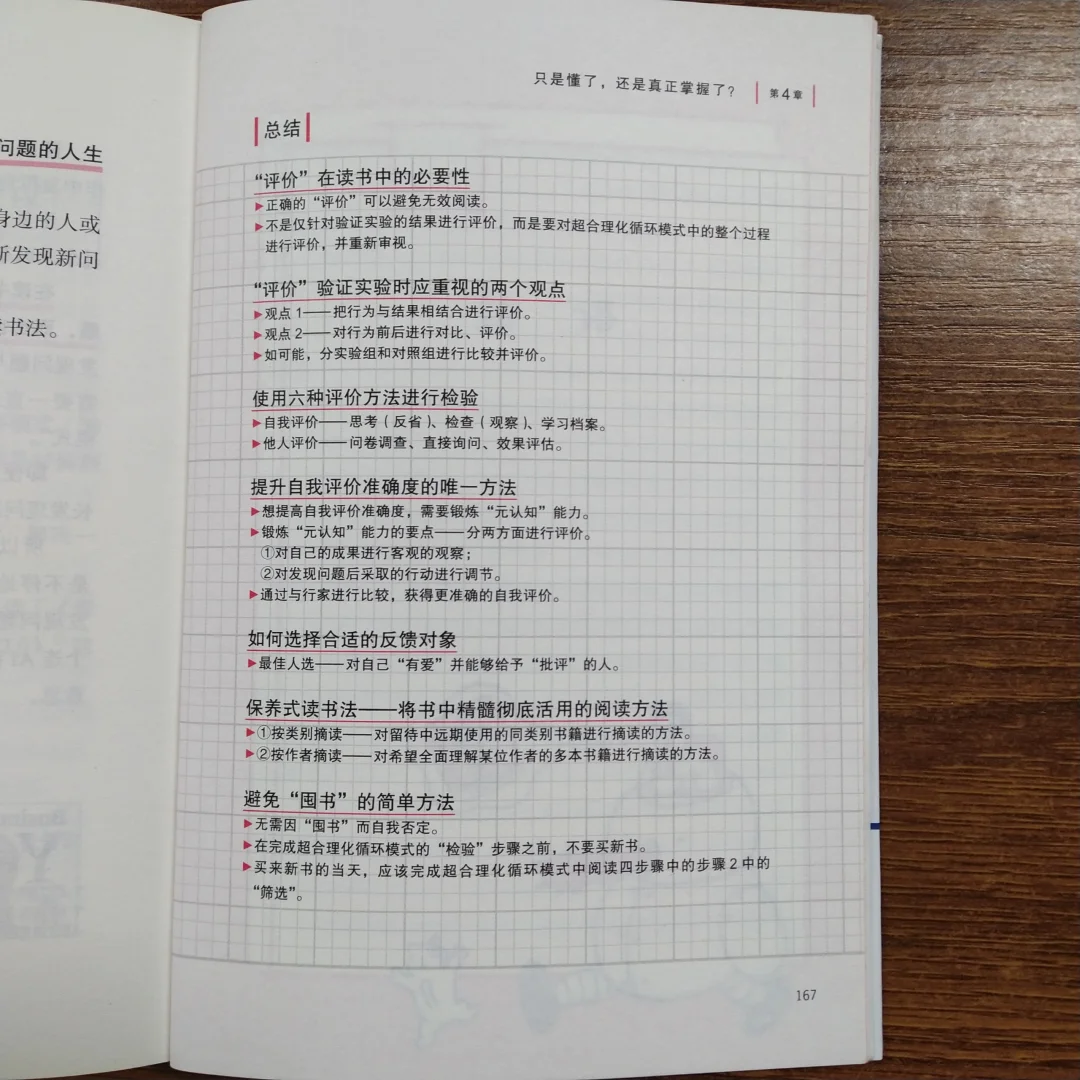 问题的人生
身边的人或
断发现新问
读书法。
只是懂了，还是真正掌握了？ 第4章
总结
“评价”在读书中的必要性
▶正确的“评价”可以避免无效阅读。
▶不是仅针对验证实验的结果进行评价，而是要对超合理化循环模式中的整个过程
进行评价，并重新审视。
“评价”验证实验时应重视的两个观点
▶观点1——把行为与结果相结合进行评价。
▶观点2——对行为前后进行对比、评价。
▶如可能，分实验组和对照组进行比较并评价。
使用六种评价方法进行检验
▶自我评价——思考（反省）、检查（观察）、学习档案。
▶他人评价——问卷调查、直接询问、效果评估。
提升自我评价准确度的唯一方法
▶想提高自我评价准确度，需要锻炼“元认知”能力。
▶锻炼“元认知”能力的要点——分两方面进行评价。
①对自己的成果进行客观的观察；
②对发现问题后采取的行动进行调节。
▶通过与行家进行比较，获得更准确的自我评价。
如何选择合适的反馈对象
▶最佳人选——对自己“有爱”并能够给予“批评”的人。
保养式读书法——将书中精髓彻底活用的阅读方法
▶①按类别摘读——对留待中远期使用的同类别书籍进行摘读的方法。
▶②按作者摘读——对希望全面理解某位作者的多本书籍进行摘读的方法。
避免“囤书”的简单方法
▶无需因“囤书”而自我否定。
▶在完成超合理化循环模式的“检验”步骤之前，不要买新书。
▶买来新书的当天，应该完成超合理化循环模式中阅读四步骤中的步骤2中的
“筛选”。
167